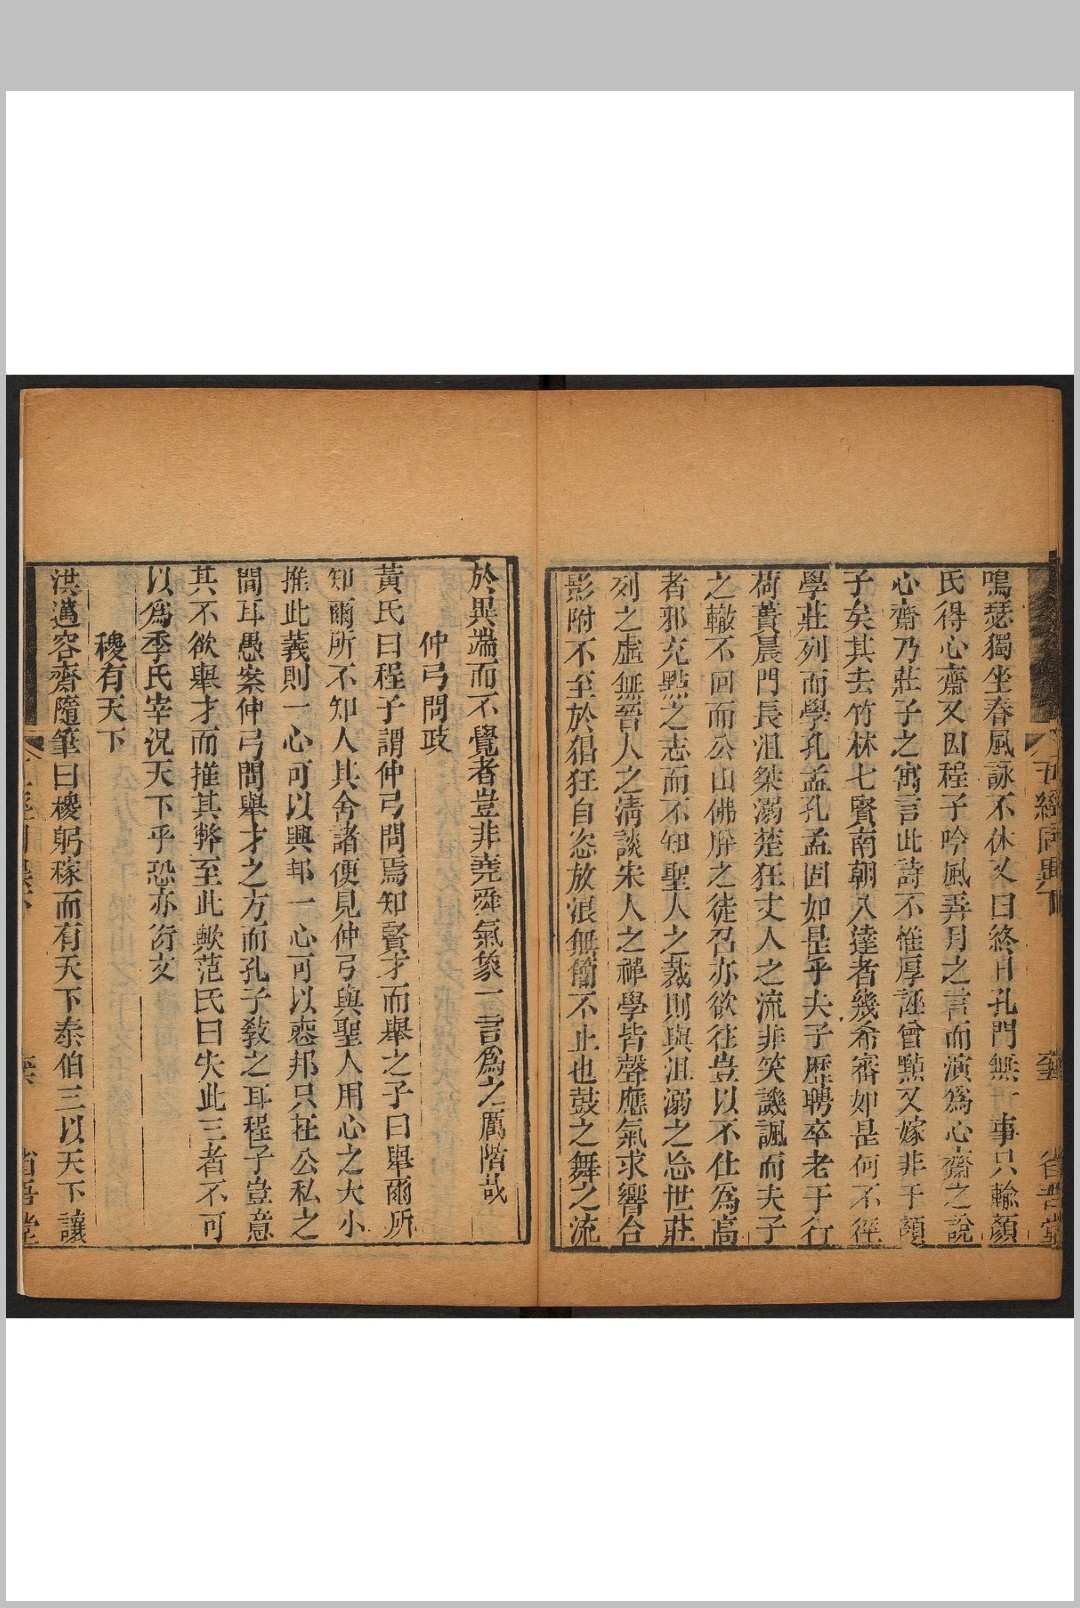 鳴瑟獨坐春風詠不休又曰終日孔門無一事只輸顏
氏得心齋又因程子吟風弄月之言而演爲心齋之說
心齋乃莊子之寓言此詩不惟厚誣曾點又嫁非于顏
子矣其去竹林七賢南朝八達者幾希審如是何不徑
學莊列而學孔孟孔孟固如是乎夫子歷聘卒老于行
荷蕢晨門長沮桀溺楚狂丈人之流非笑譏諷而夫子
之轍不回而公山佛肸之徒召亦欲往豈以不仕為高
者邪充點之志而不知聖人之裁則與沮溺之忘世莊
列之虛無晉人之清談宋人之禪學皆聲應氣求響合
影附不至於猖狂自恣放浪無簡不止也鼓之舞之流
於異端而不覺者豈非堯舜氣象一言爲之厲階哉
仲弓問政
黃氏曰程子謂仲弓問焉知賢才而舉之子曰舉爾所
知爾所不知人其舍諸便見仲弓與聖人用心之大小
推此義則一心可以興邦一心可以喪邦只在公私之
間耳愚案仲弓問舉才之方而孔子敎之耳程子豈意
其不欲舉才而推其弊至此歟范氏曰失此三者不可
以爲季氏宰况天下乎恐亦衍文
稷有天下
洪邁容齋隨筆曰稷躬稼而有天下泰伯三以天下讓